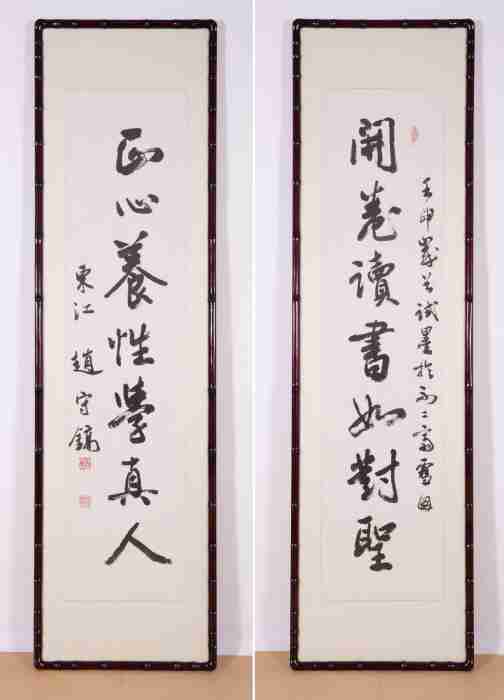 壬申歲首試墨於二齋雪
開卷讀書如對聖
正心養性學真人
東江 趙守鎬